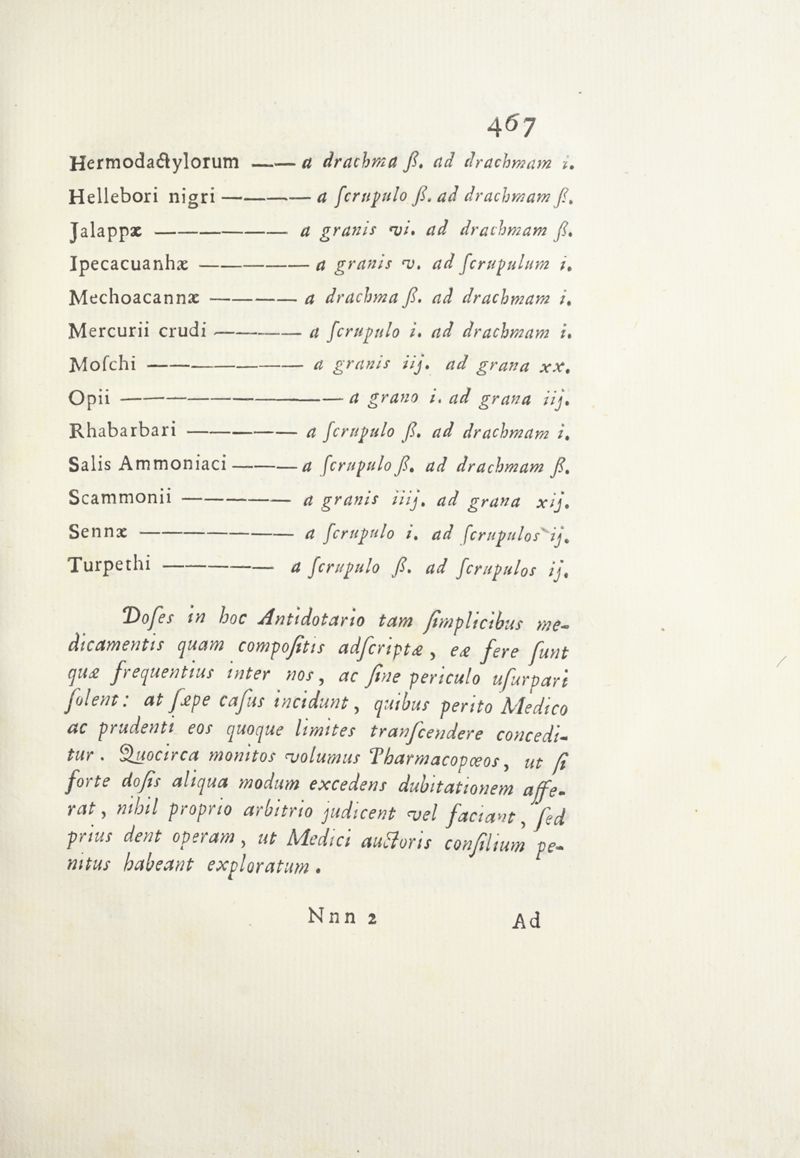 467
Hermodactylorum —— a drachma ß. ad drachmam i.
Hellebori nigri ———— a ſcrupulo ß. ad drachmam ß.
Jalappæ ————— a granis vi. ad drachmam ß.
Ipecacuanhæ ———— a granis v. ad ſcrupulum i.
Mechoacannæ ———— a drachma ß. ad drachmam i.
Mercurii crudi ———— a ſcrupulo i. ad drachmam i.
Moſchi —————— a granis iij. ad grana xx.
Opii ———————— a grano i. ad grana iij.
Rhabarbari ———— a ſcrupulo ß. ad drachmam i.
Salis Ammoniaci ——— a ſcrupulo ß. ad drachmam ß.
Scammonii ———— a granis iiij. ad grana xij.
Sennæ —————— a ſcrupulo i. ad ſcrupulos ij.
Turpethi ———— a ſcrupulo ß. ad ſcrupulos ij.
Doſes in hoc Antidotario tam ſimplicibus me-
dicamentis quam compoſitis adſcriptæ, eæ fere ſunt
quæ frequentius inter nos, ac ſine periculo uſurpari
ſolent: at ſæpe caſus incidunt, quibus perito Medico
ac prudenti eos quoque limites tranſcendere concedi-
tur. Quocirca monitos volumus Pharmacopœos, ut ſi
forte doſis aliqua modum excedens dubitationem affe-
rat, nihil proprio arbitrio judicent vel faciant, ſed
prius dent operam, ut Medici auctoris conſilium pe-
nitus habeant exploratum.
Nnn 2 Ad